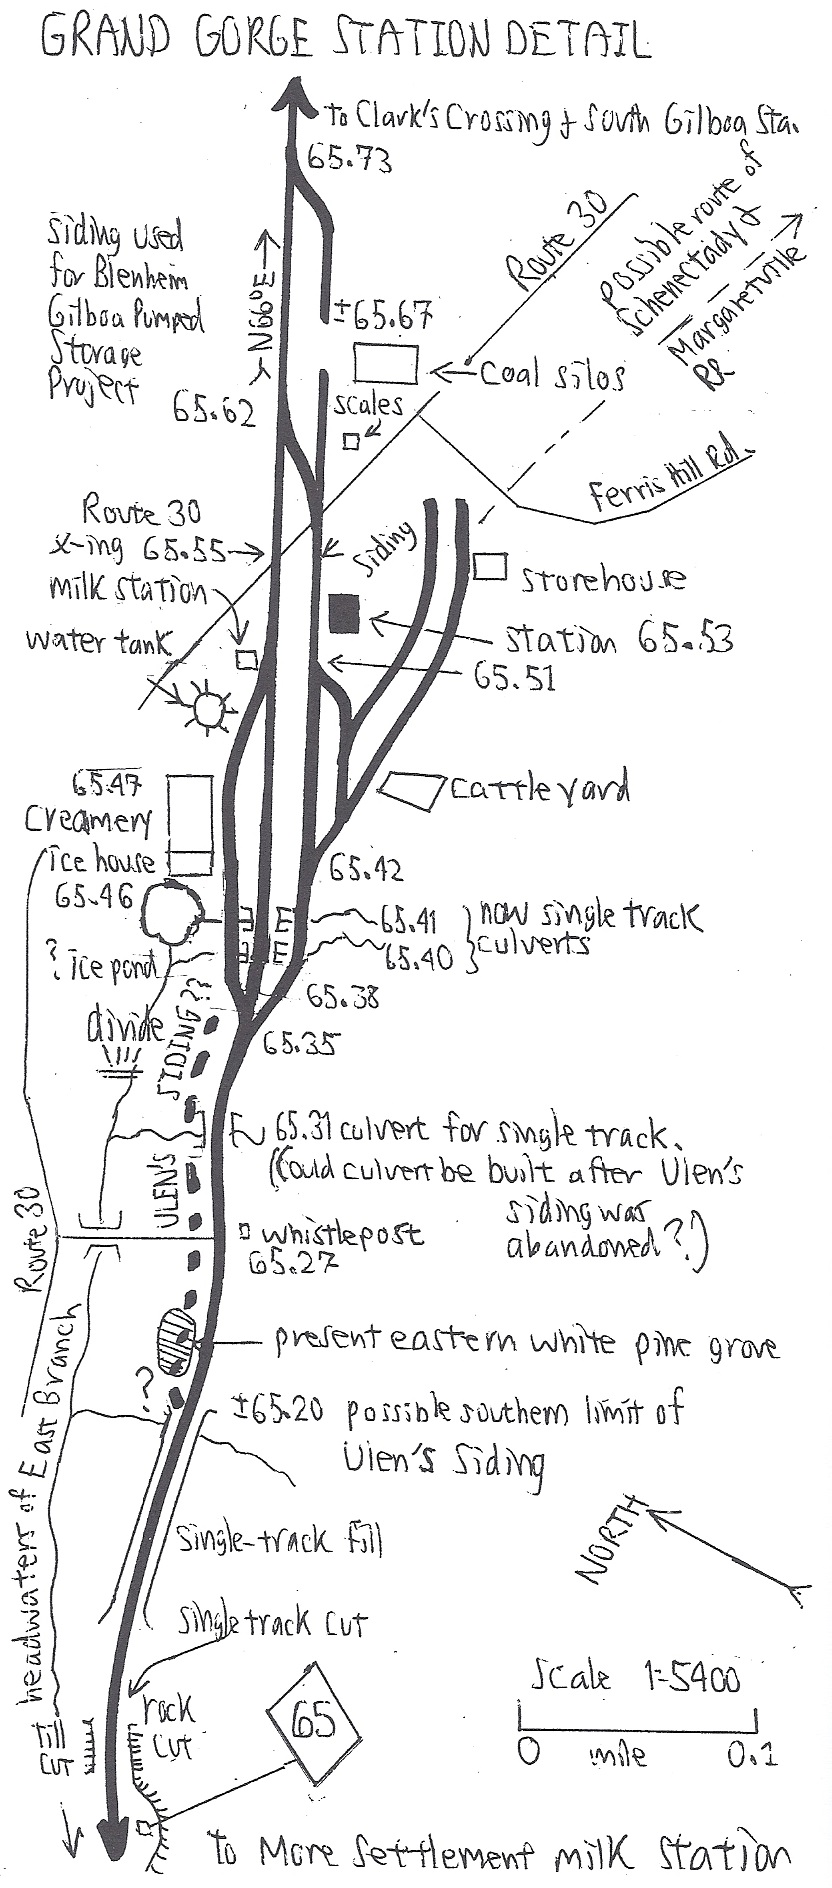 GRAND GORGE STATION DETAIL
to Clark's Crossing & South Gilboa Sta.
65.73
Route 30
Possible route of
Schenectady &
Margaretville
RR
Siding used
for Blenheim
Gilboa Pumped
Storage
Project
N66°E
±65.67
Coal silos
65.62
scales
Ferris Hill Rd.
Route 30
x-ing 65.55
Siding
milk station
Storehouse
water tank
Station 65.53
65.51
65.47
Creamery
Cattle yard
ice house
65.46
65.42
65.41
65.40
now single track
culverts
? ice pond
65.38
divide
65.35
ULEN'S SIDING??
65.31 culvert for single track.
(Could culvert be built after Ulen's
siding was
abandoned?)
Route 30
whistlepost
65.27
present eastern white pine grove
?
±65.20 possible southern limit of
Ulen's Siding
headwaters of East Branch
NORTH
Single-track fill
Single track cut
Scale 1=5400
0 mile 0.1
rock
cut
65
to More Settlement milk station